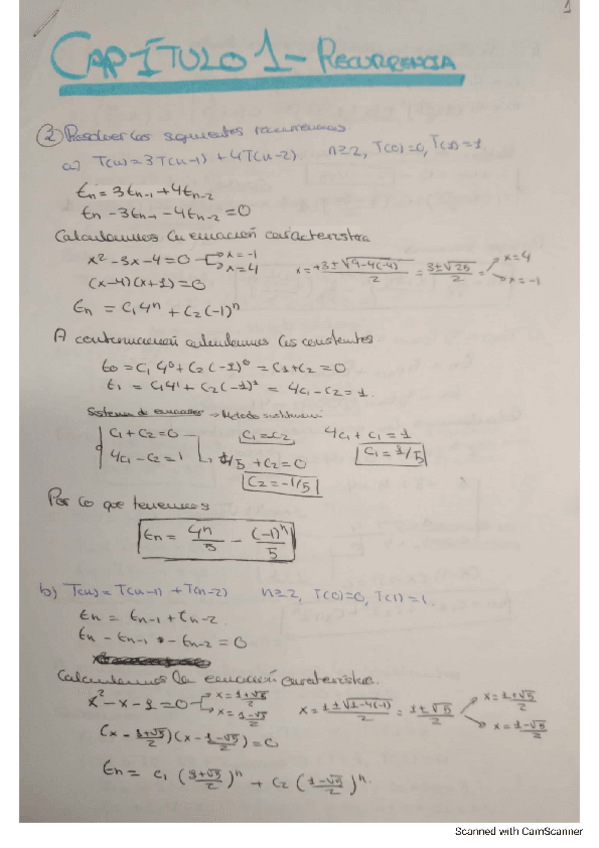 1
CAPÍTULO 1 - RECURRENCIA
2 Resolver las siguientes recurrencias
a) T(n) = 3T(n-1) + 4T(n-2) n≥2, T(0)=0, T(1)=1.
tn = 3tn-1 + 4tn-2
tn - 3tn-1 - 4tn-2 = 0
Calculamos la ecuación característica
x² - 3x - 4 = 0 x = -1 x = 4 x = +3 ± √9-4(-4) / 2 = 3 ± √25 / 2 = x = 4 x = -1
(x-4)(x+1) = 0
tn = C1 4ⁿ + C2 (-1)ⁿ
A continuación calculamos las constantes
t0 = C1 4⁰ + C2 (-1)⁰ = C1 + C2 = 0
t1 = C1 4¹ + C2 (-1)¹ = 4C1 - C2 = 1.
Sistema de ecuaciones → Método sustitución
C1 + C2 = 0 C1 = C2 4C1 + C1 = 1
4C1 - C2 = 1 1/5 + C2 = 0 C1 = 1/5
C2 = -1/5
Por lo que tenemos
tn = 4ⁿ/5 - (-1)ⁿ/5
b) T(n) = T(n-1) + T(n-2) n≥2, T(0)=0, T(1)=1.
tn = tn-1 + tn-2
tn - tn-1 - tn-2 = 0
Calculamos la ecuación característica.
x² - x - 1 = 0 x = 1+√5/2 x = 1-√5/2 x = 1 ± √1-4(-1) / 2 = 1 ± √5 / 2 x = 1+√5/2 x = 1-√5/2
(x - 1+√5/2)(x - 1-√5/2) = 0
tn = C1 (1+√5/2)ⁿ + C2 (1-√5/2)ⁿ.
Scanned with CamScanner